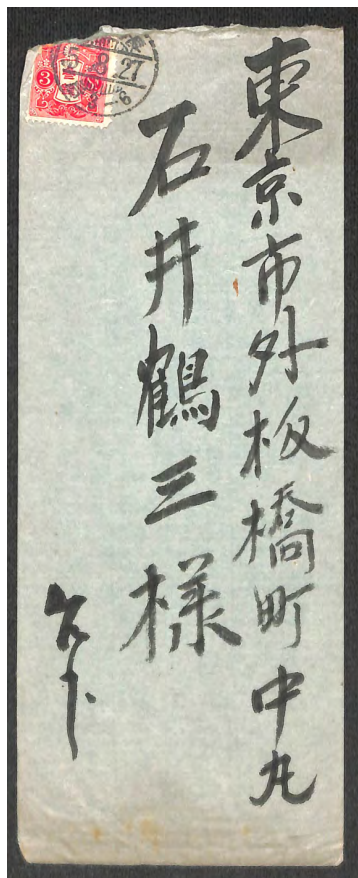 東京市外板橋町中丸
石井鶴三様
5.8.27
3